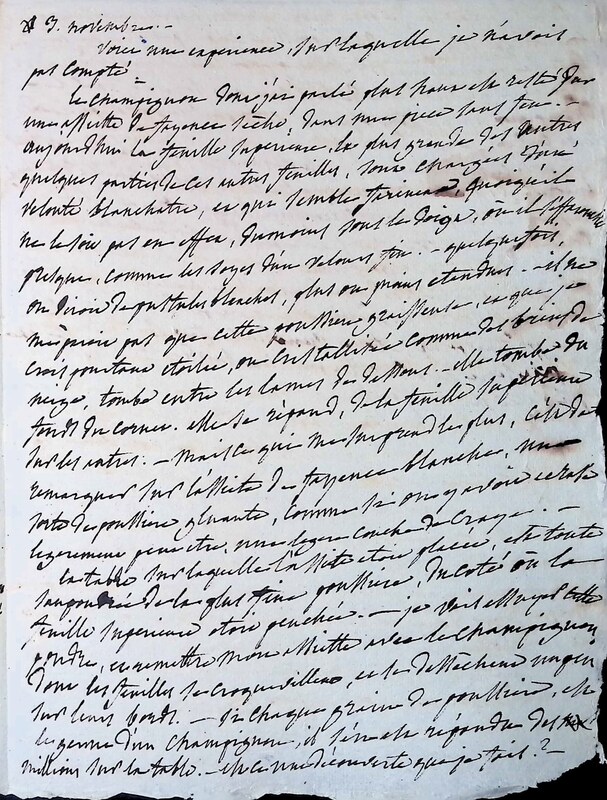 3. novembre. -
Voici une expérience, sur laquelle je n'avois
pas compté.
Le champignon dont j'ai parlé plus haut est resté sur
une assiette de fayence sèche, dans une pièce sans feu. -
aujourd'hui la feuille supérieure, la plus grande des autres
quelques parties de ces autres feuilles, sont chargées d'un
velouté blanchatre, et qui semble farineux quoiqu'il
ne le soit pas en effet, du moins sous le doigt, où il
presque, comme les soyes d'un velours fin. - quelquefois,
on diroit de pustules blanches, plus ou moins etendues. - il ne
pas que cette poussière graisseuse, et que je
crois pourtant etoilée, ou cristallisée comme des brins de
neige, tombe entre les lames de dessous. - elle tombe du
fond du cornet. elle se répand, de la feuille supérieure
sur les autres. - mais ce qui me surprend le plus, c'est de
remarquer sur l'assiette de fayence blanche, une
sorte de poussière gluante, comme si on y avoit écrasé
legerement peut etre, une legere couche de craye. -
la table sur laquelle l'assiette etoit placée, est toute
saupoudrée de la plus fine poussière, du coté où la
feuille supérieure etoit penchée. - je vais essuyer cette
poudre, et remettre mon assiette avec le champignon
dont les feuilles se croquevillent, et se dessèchent un peu
sur leurs bords. - si chaque graine de poussière, est
le germe d'un champignon, il s'en est répandu des
millions sur la table. - est ce une découverte que je fais? -